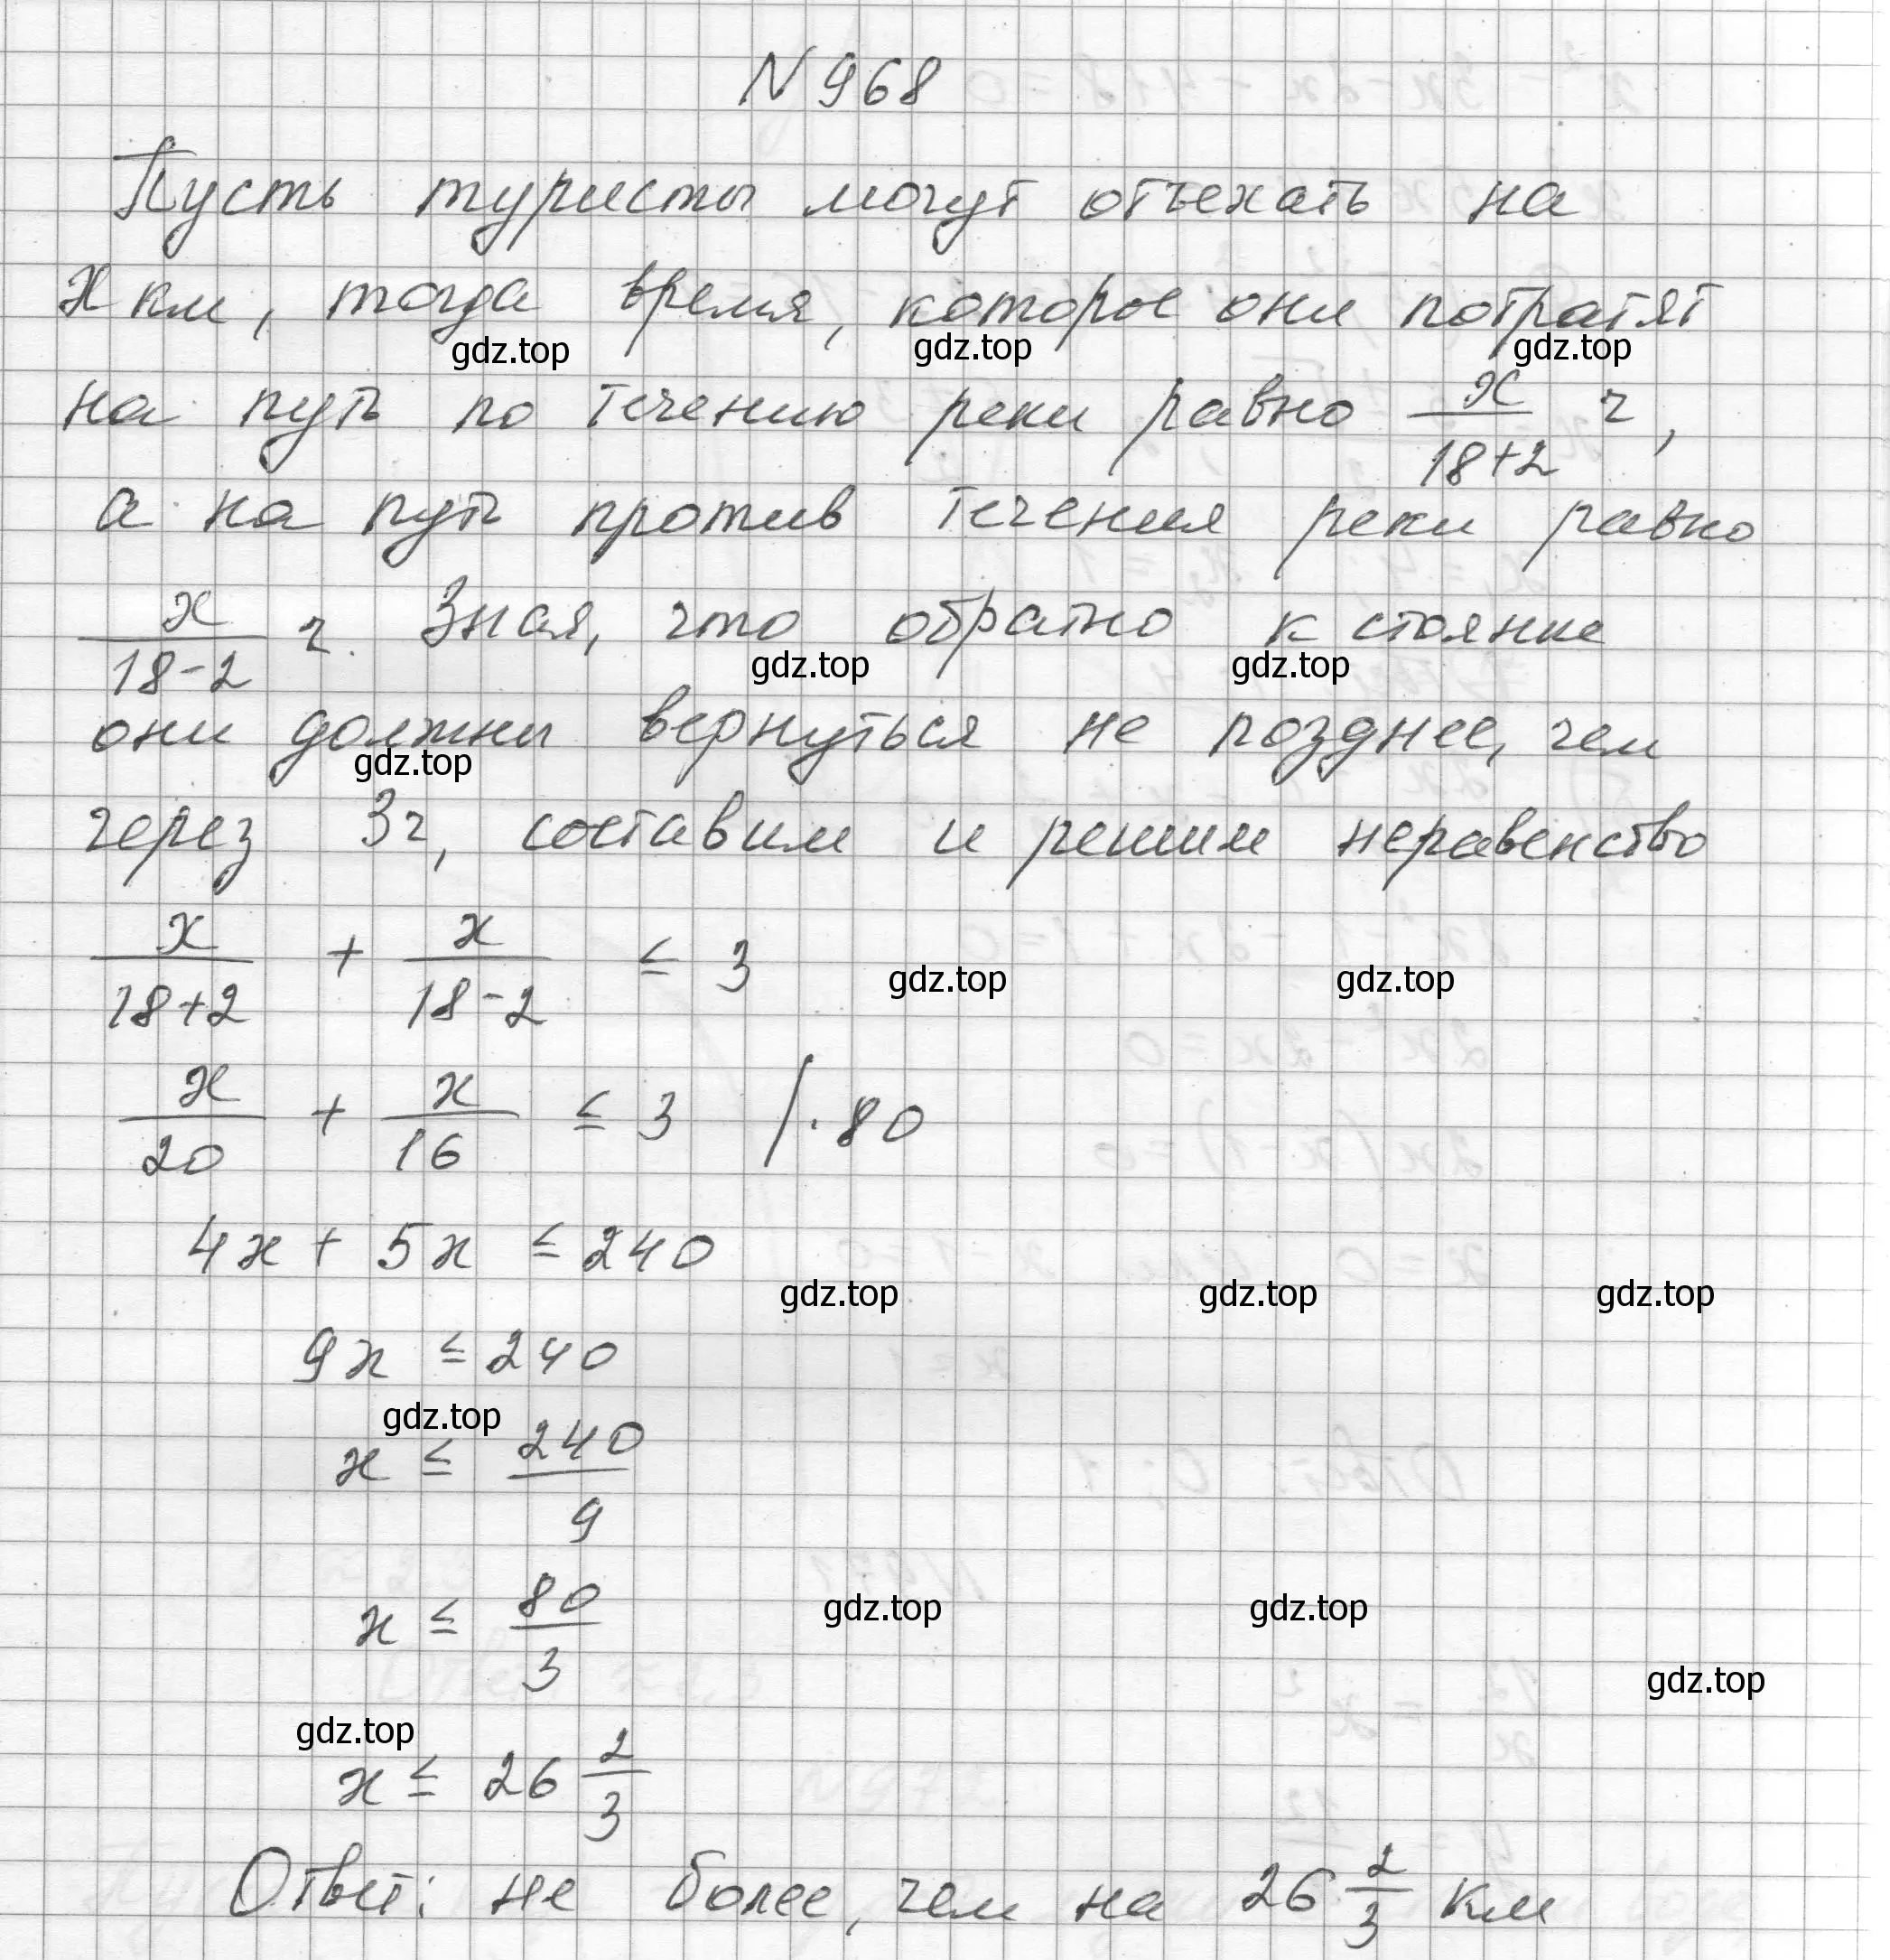 N 968
Пусть туристы могут отъехать на
х км, тогда время, которое они потратят
gdz.top gdz.top gdz.top
на путь по течению реки равно x/(18+2) ч,
а на путь против течения реки равно
x/(18-2) ч. Зная, что обратно к стоянке
gdz.top gdz.top
они должны вернуться не позднее, чем
gdz.top
через 3ч, составим и решим неравенство
x/(18+2) + x/(18-2) ≤ 3
gdz.top gdz.top
x/20 + x/16 ≤ 3 /·80
4x + 5x ≤ 240
gdz.top gdz.top gdz.top
9x ≤ 240
gdz.top
x ≤ 240/9
x ≤ 80/3
gdz.top gdz.top
gdz.top
gdz.top
x ≤ 26 2/3
Ответ: не более, чем на 26 2/3 км